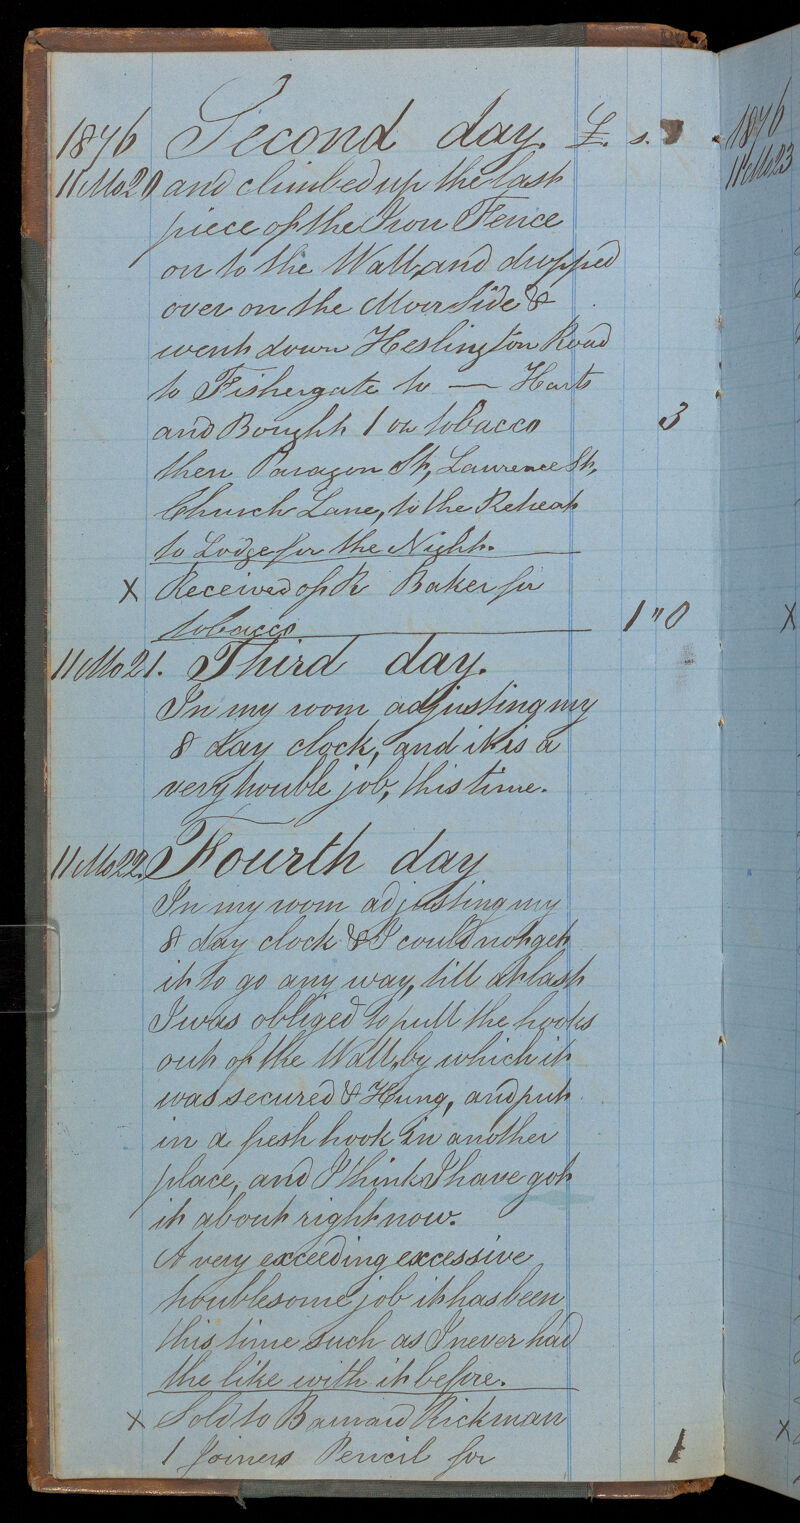 1876 Second day. £. s.
11 Mo 20 and climbed up the last
piece of the Iron Fence
on to the Wall, and dropped
over on the Moor Side &
went down Heslington Road
to Fishergate to — Harts
and Bought 1 oz tobacco 3
then Paragon St, Lawrence St,
Church Lane, to the Retreat
to Lodge for the Night.
X Received of R Baker for
tobacco 1 " 0
11 Mo 21. Third day.
In my room adjusting my
8 day clock, and it is a
very trouble job, this time.
11 Mo 22. Fourth day
In my room adjusting my
8 day clock & I could not get
it to go any way, till at last
I was obliged to pull the hooks
out of the Wall, by which it
was secured & Hung, and put
in a fresh hook in another
place, and I think I have got
it about right now.
A very exceeding excessive
troublesome job it has been
this time such as I never had
the like with it before.
X Sold to Barnard Rickman
1 Joiners Pencil for 1
1876
11 Mo 23
X
X